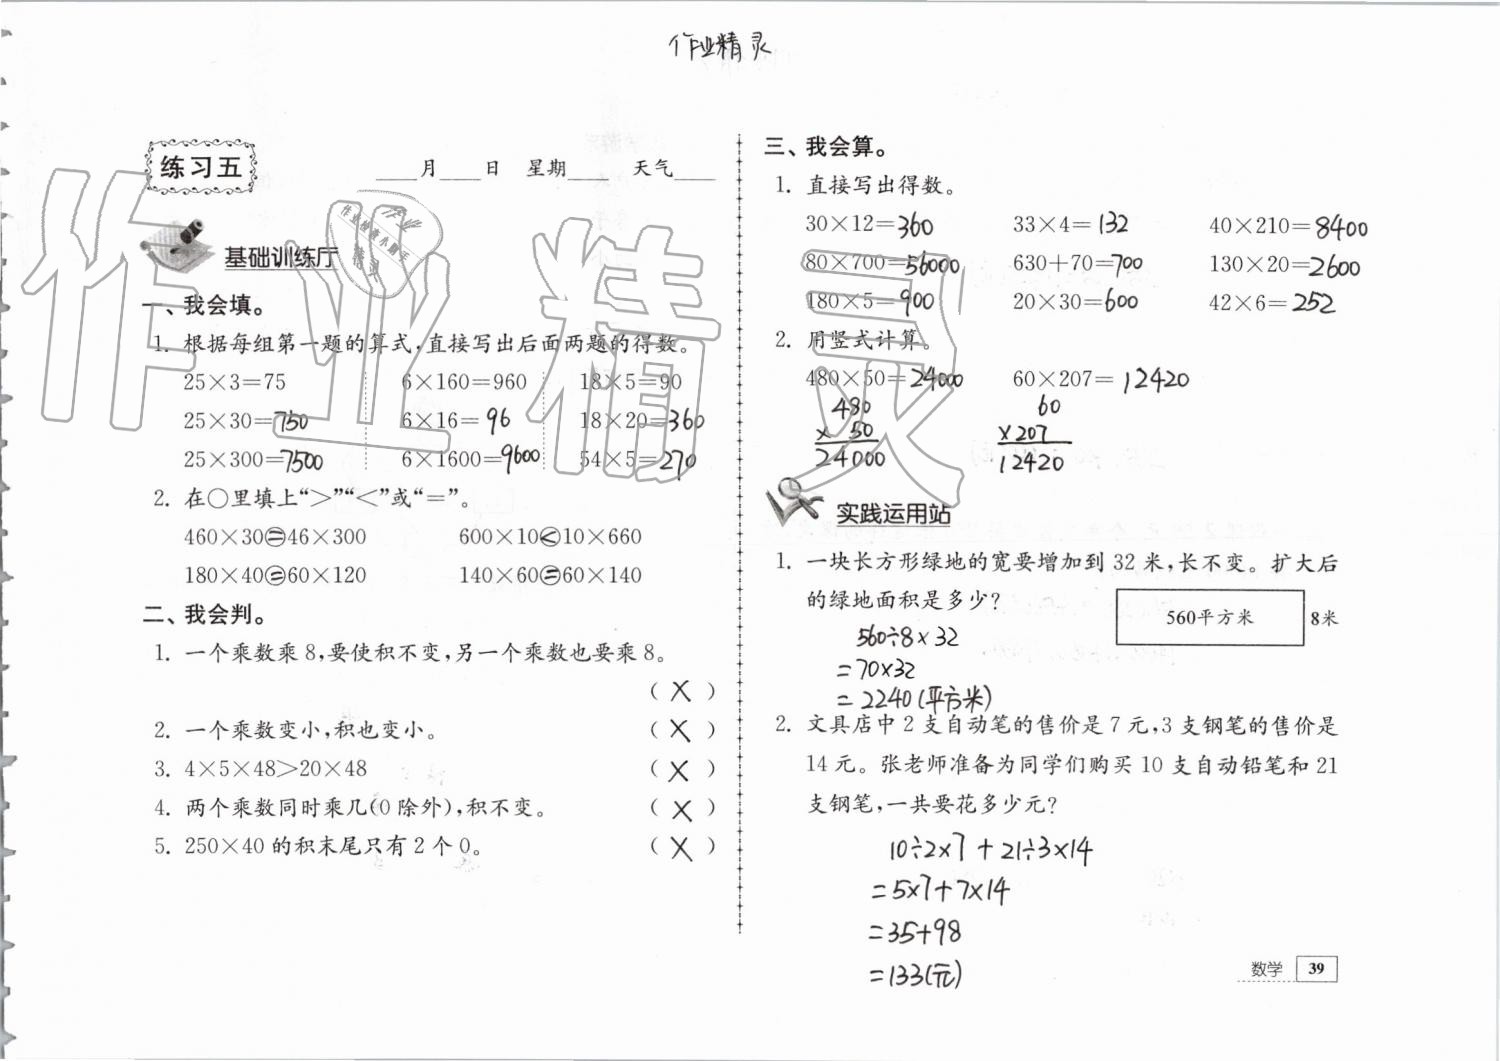 作业精灵
练习五
____月____日 星期____ 天气____
基础训练厅
一、我会填。
1. 根据每组第一题的算式,直接写出后面两题的得数。
25×3=75 6×160=960 18×5=90
25×30=750 6×16=96 18×20=360
25×300=7500 6×1600=9600 54×5=270
2. 在○里填上“>”“<”或“=”。
460×30=46×300 600×10<10×660
180×40=60×120 140×60=60×140
二、我会判。
1. 一个乘数乘8,要使积不变,另一个乘数也要乘8。
(×)
2. 一个乘数变小,积也变小。 (×)
3. 4×5×48>20×48 (×)
4. 两个乘数同时乘几(0除外),积不变。 (×)
5. 250×40的积末尾只有2个0。 (×)
三、我会算。
1. 直接写出得数。
30×12=360 33×4=132 40×210=8400
80×700=56000 630+70=700 130×20=2600
180×5=900 20×30=600 42×6=252
2. 用竖式计算。
480×50=24000 60×207=12420
480 60
× 50 ×207
24000 12420
实践运用站
1. 一块长方形绿地的宽要增加到32米,长不变。扩大后
的绿地面积是多少?
560平方米 8米
560÷8×32
=70×32
=2240(平方米)
2. 文具店中2支自动笔的售价是7元,3支钢笔的售价是
14元。张老师准备为同学们购买10支自动铅笔和21
支钢笔,一共要花多少元?
10÷2×7+21÷3×14
=5×7+7×14
=35+98
=133(元)
数学 39
作业精灵
作业
作业检查小帮手
精灵